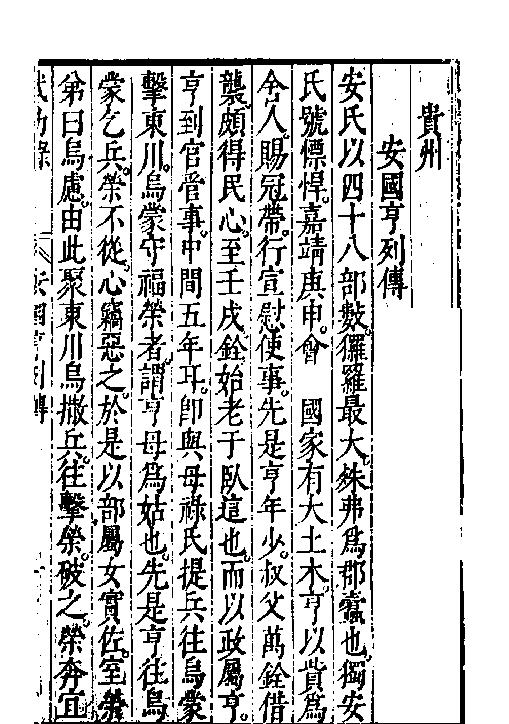 貴州
安國亨列傳
安氏以四十八部數玀羅最大姝弗爲郡蠹也獨安
氏號慓悍嘉靖庚申會 國家有大土木亨以貲爲
舍人賜冠帶行宣慰使事先是亨年少叔父萬銓借
襲頗得民心至壬戌銓始老于臥這也而以政屬亨
亨到官晉事中間五年耳卽與母祿氏提兵往烏蒙
擊東川烏蒙守福榮者謂亨母爲姑也先是亨往烏
蒙乞兵榮不從心竊惡之於是以部屬女實佐室榮
弟曰烏慮由此聚東川烏撒兵往擊榮破之榮奔直